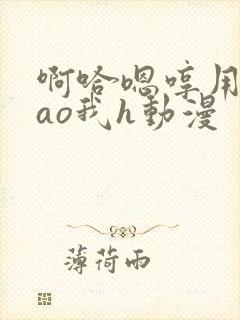 啊哈嗯哼用
ao我h動漫
薄荷雨